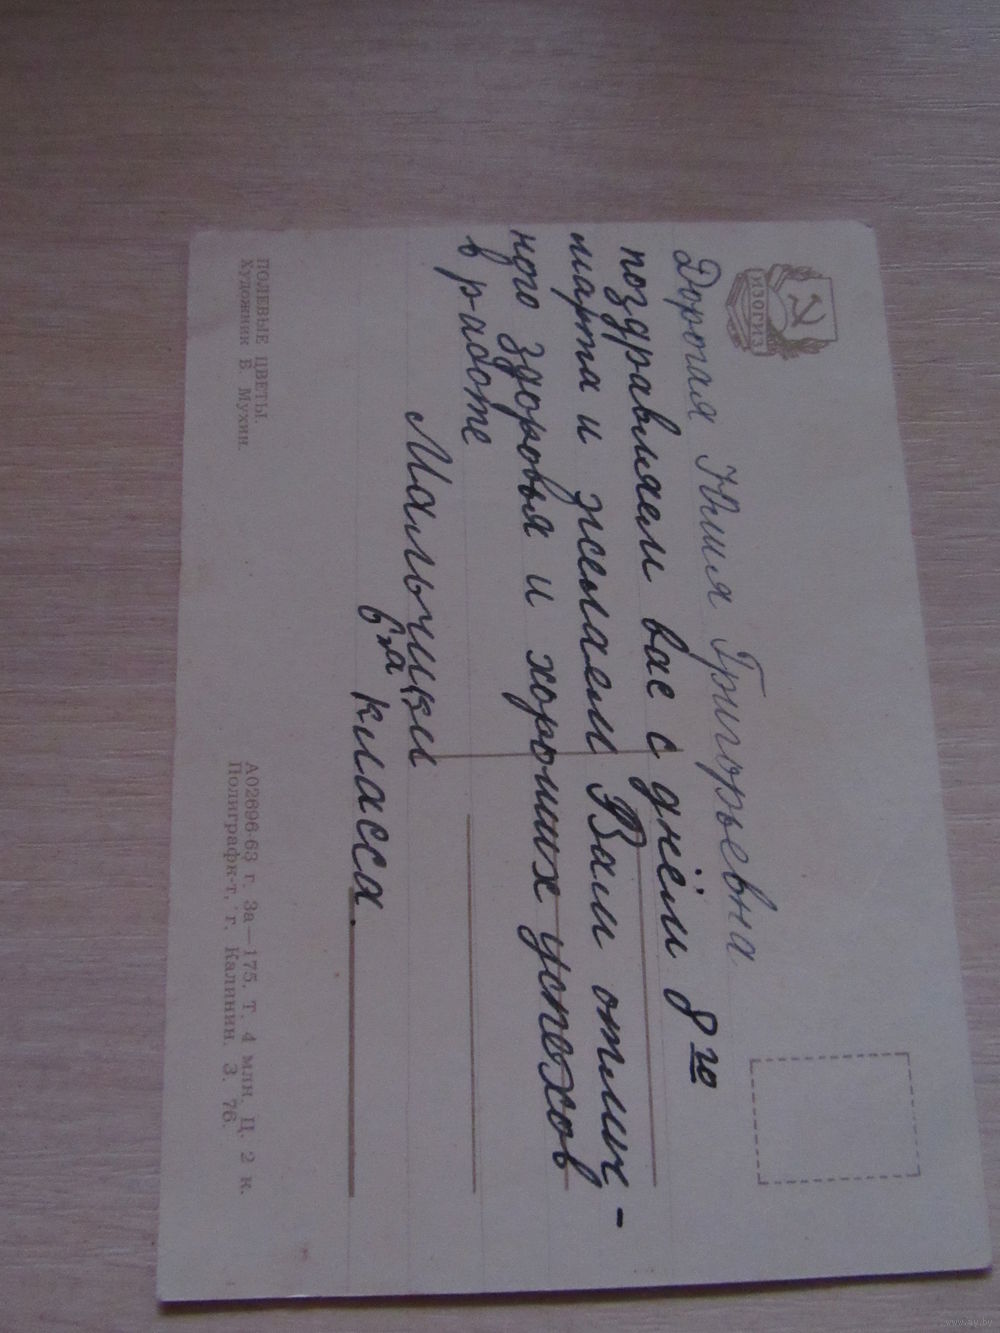 ИЗОГИЗ
Дорогая Юлия Григорьевна
поздравляем вас с днём 8го
марта и желаем Вам отлич-
ного здоровья и хороших успехов
в работе
Мальчики
6"а класса.
ПОЛЕВЫЕ ЦВЕТЫ.
Художник Б. Мухин.
А02696-63 г. За—175. Т. 4 млн. Ц. 2 к.
Полиграфк-т, г. Калинин. З. 76.
www.ay.by